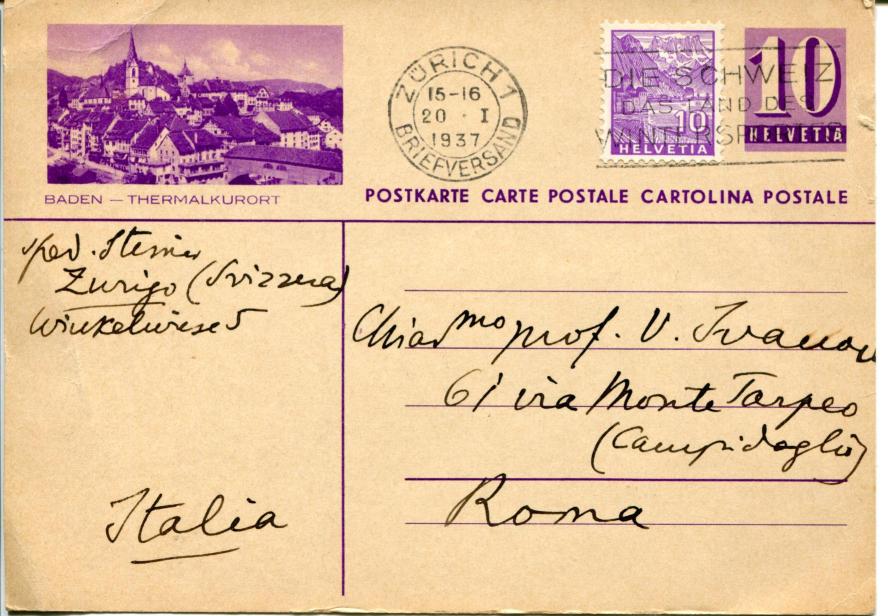 BADEN — THERMALKURORT
ZÜRICH 1
15-16
20 · I
1937
BRIEFVERSAND
DIE SCHWEIZ
DAS LAND DES
WINTERSPORTS
10
HELVETIA
10
HELVETIA
POSTKARTE CARTE POSTALE CARTOLINA POSTALE
sped. Steiner
Zurigo (Svizzera)
Winkelwiese 5
Italia
Chiar^mo prof. V. Ivanov
61 via Monte Tarpeo
(Campidoglio)
Roma